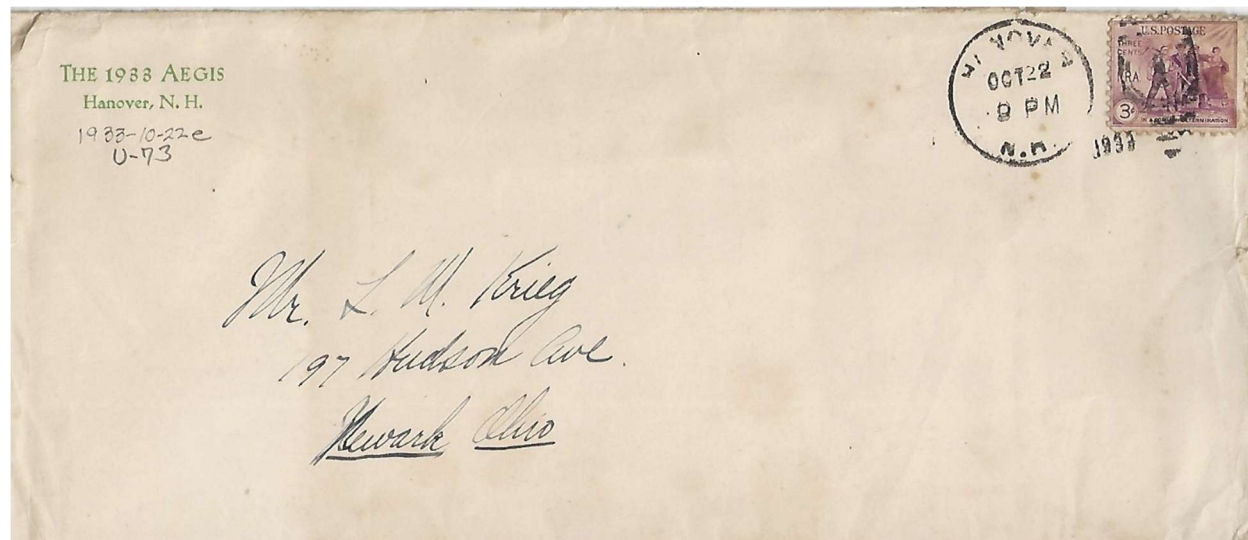 THE 1933 AEGIS
Hanover, N. H.
1933-10-22e
U-73
HANOVER
OCT 22
9 PM
N.H.
1933
U.S. POSTAGE
THREE
CENTS
3¢
Mr. L. M. Krieg
197 Hudson Ave.
Newark Ohio